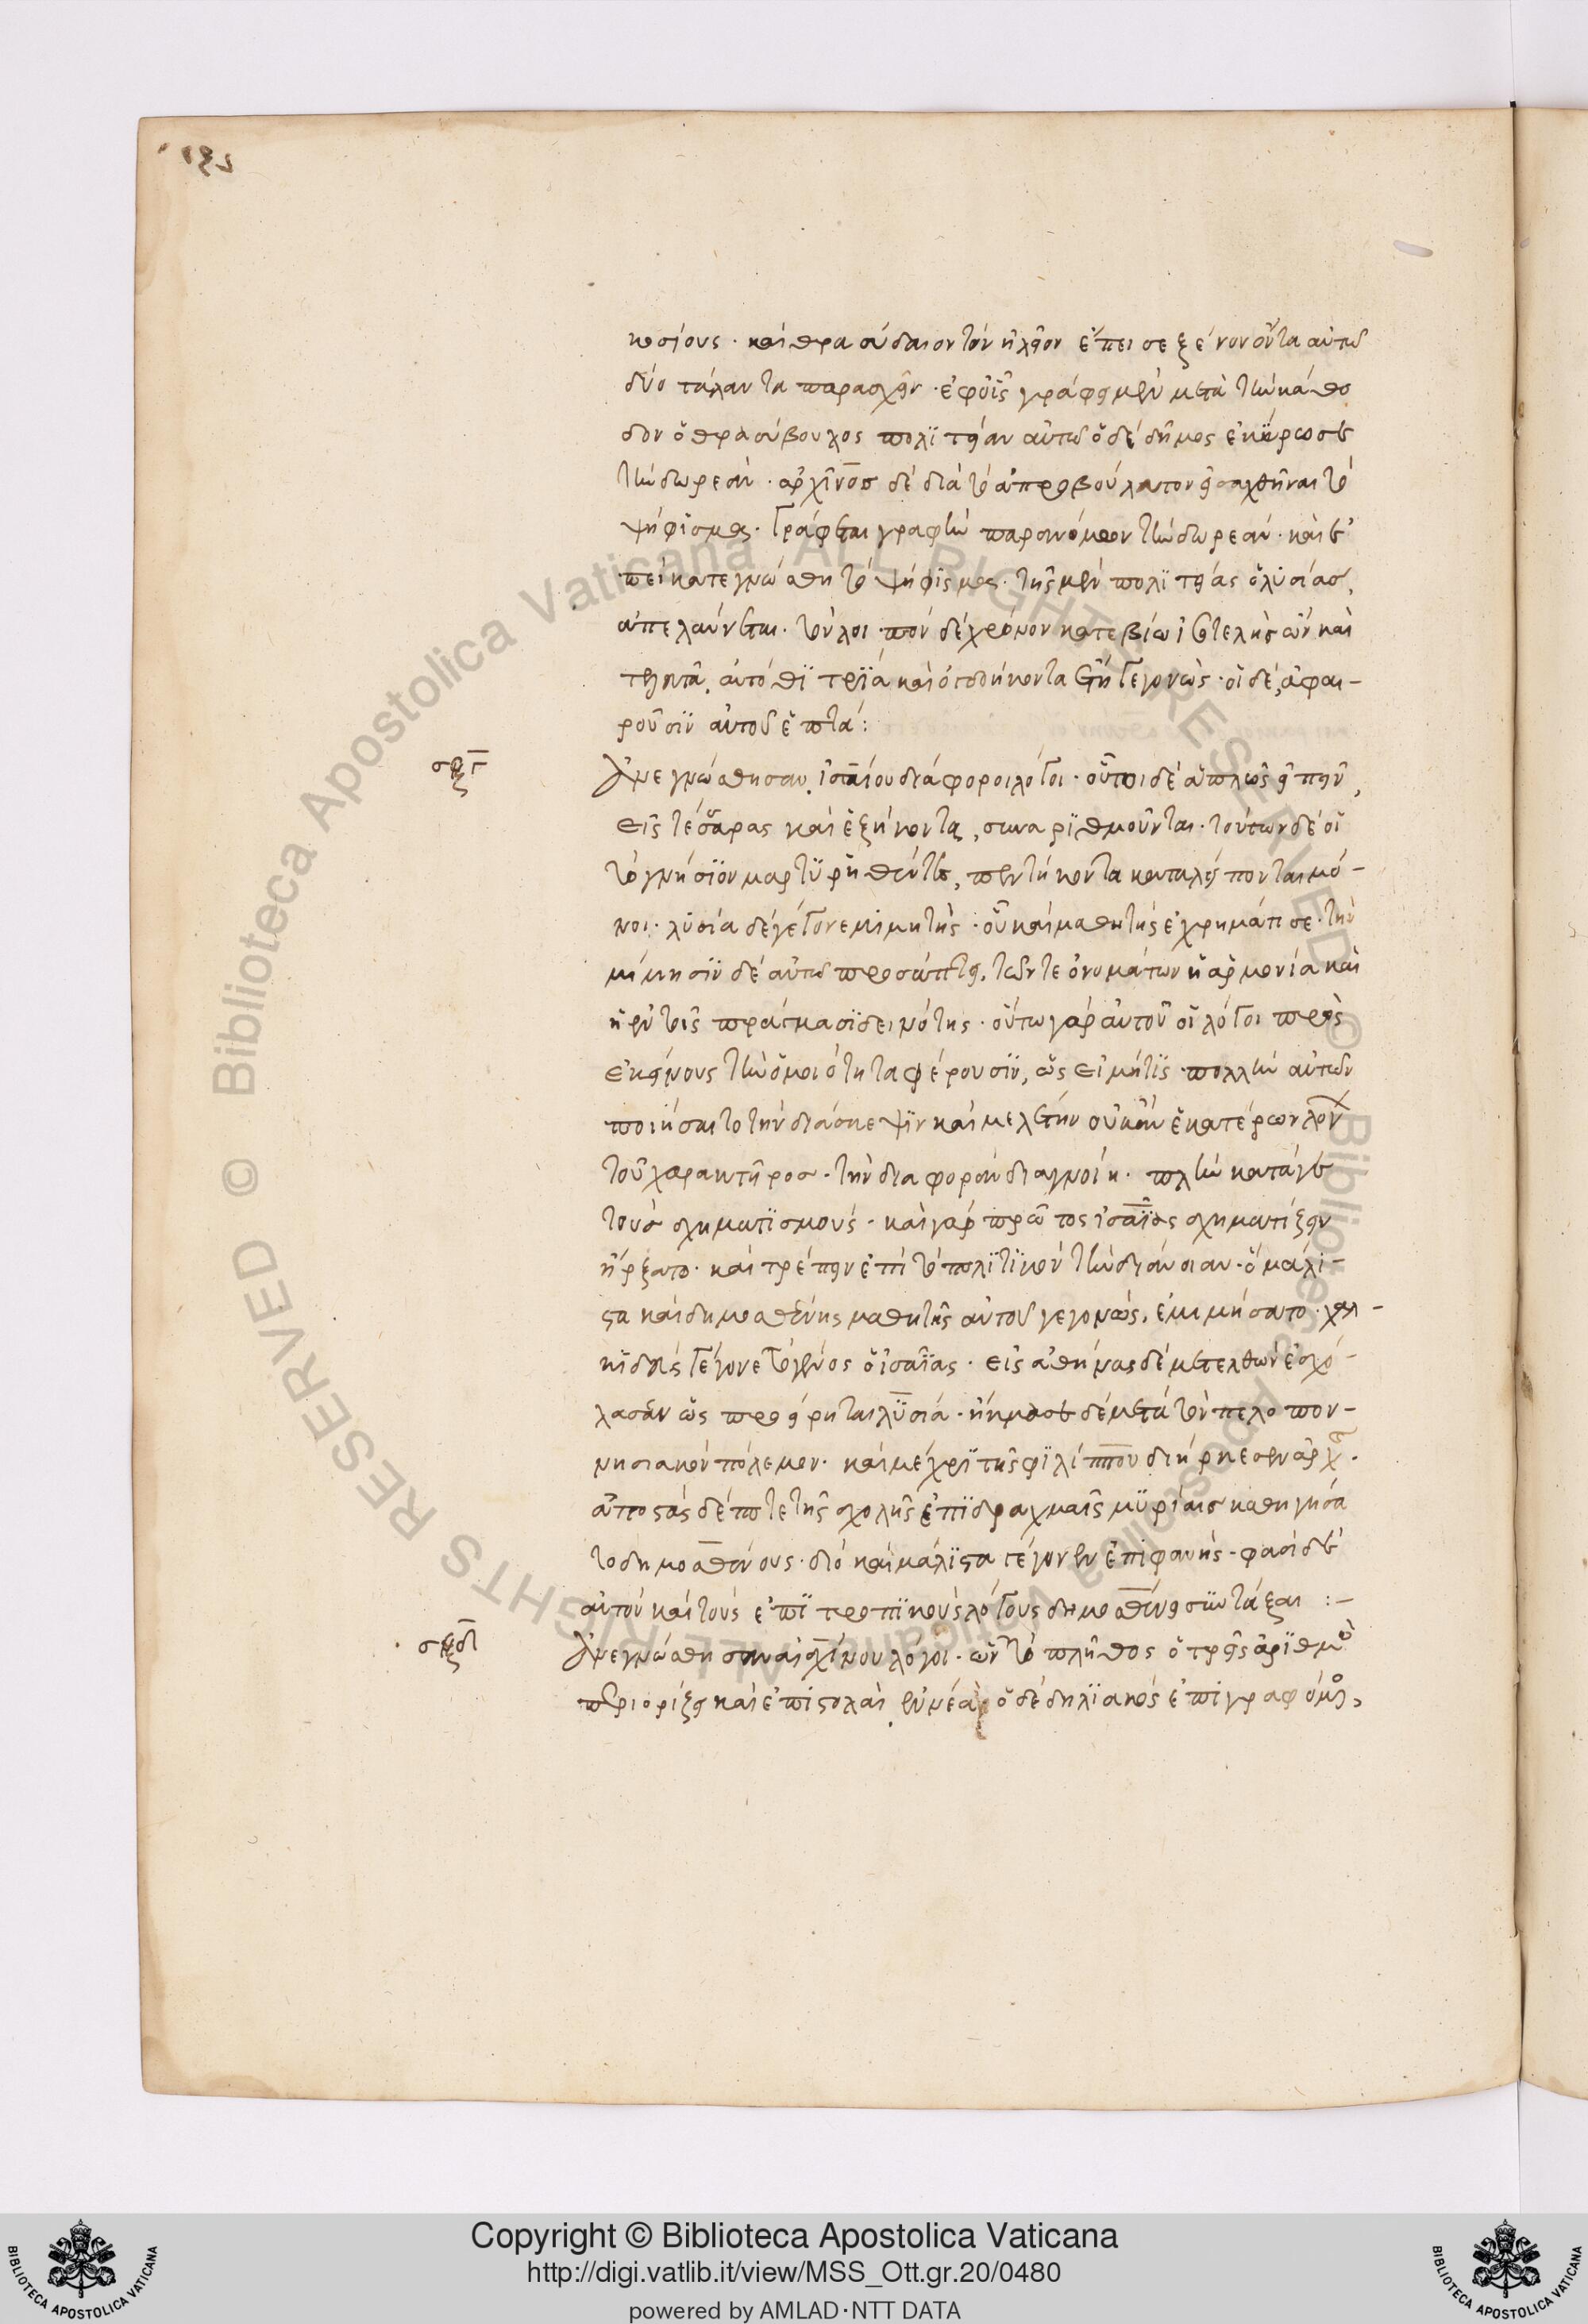 κοσίους· καὶ θρασύδαιον τὸν ἠλεῖον ἔπεισε ξένον ὄντα αὐτῶ
δύο τάλαντα παρασχεῖν· ἐφ' οἷς γράφει μὲν μετὰ τὴν κάθο
δον ὁ θρασύβουλος πολιτείαν αὐτῶ ὁ δὲ δῆμος ἐκύρωσε
τὴν δωρεάν· ἀρχῖνος δὲ διὰ τὸ ἀπροβούλευτον εἰσαχθῆναι τὸ
ψήφισμα· γράφεται γραφὴν παρανόμων τὴν δωρεάν· καὶ ἐ
πεὶ κατεγνώσθη τὸ ψήφισμα· τῆς μὲν πολιτείας ὁ λυσίας,
ἀπελαύνεται· τὸν λοιπὸν δὲ χρόνον κατεβίω ἰσοτελὴς ὢν καὶ
τελευτᾶ, αὐτόθι τρία καὶ ὀγδοήκοντα ἔτη γεγονώς· οἱ δὲ, ἀφαι-
ροῦσιν αὐτοῦ ἑπτά:
σξγ
Ἀνεγνώσθησαν, ἰσαίου διάφοροι λόγοι· οὗτοι δὲ ἁπλῶς εἰπεῖν,
εἰς τέσσαρας καὶ ἑξήκοντα, συναριθμοῦνται· τούτων δὲ οἱ
τὸ γνήσιον μαρτυρηθέντες, πεντήκοντα καταλείπονται μό-
νοι· λυσία δὲ γέγονε μιμητής· οὗ καὶ μαθητὴς ἐχρημάτισε· τὴν
μίμησιν δὲ αὐτῶ προσάπτει, τῶν τε ὀνομάτων ἡ ἁρμονία καὶ
ἡ ἐν τοῖς πράγμασι δεινότης· οὕτω γὰρ αὐτοῦ οἱ λόγοι πρὸς
ἐκείνους τὴν ὁμοιότητα φέρουσιν, ὡς εἰ μή τις πολλὴν αὐτῶν
ποιήσαιτο τὴν διάσκεψιν καὶ μελέτην οὐκ ἂν ἑκατέρων λόγων
τοῦ χαρακτῆρος· τὴν διαφορὰν διαγνοίη· πλὴν κατάγε
τοὺς σχηματισμούς· καὶ γὰρ πρῶτος ἰσαῖος σχηματίζειν
ἤρξατο· καὶ τρέπειν ἐπὶ τὸ πολιτικὸν τὴν διάνοιαν· ὃ μάλι-
στα καὶ δημοσθένης μαθητὴς αὐτοῦ γεγονώς, ἐμιμήσατο· χαλ-
κιδεὺς γέγονε τὸ γένος ὁ ἰσαῖας· εἰς ἀθήνας δὲ μετελθὼν ἐσχό-
λασεν ὡς προείρηται λυσία· ἤκμασε δὲ μετὰ τὸν πελοπον-
νησιακὸν πόλεμον· καὶ μέχρι τῆς φιλίππου διήρκεσεν ἀρχῆς·
ἀποστὰς δέ ποτε τῆς σχολῆς ἐπὶ δραχμαῖς μυρίαις καθηγήσα
το δημοσθένους· διὸ καὶ μάλιστα γέγονεν ἐπιφανής· φασὶ δὲ
αὐτὸν καὶ τοὺς ἐπιτροπικοὺς λόγους δημοσθένει συντάξαι :-
σξδ
Ἀνεγνώσθησαν αἰσχίνου λόγοι· ὧν τὸ πλῆθος ὁ τρεῖς ἀριθμὸς
περιορίζει καὶ ἐπιστολαὶ, ἐννέα ὁ δὲ δηλιακὸς ἐπιγραφόμενος,
Copyright © Biblioteca Apostolica Vaticana
http://digi.vatlib.it/view/MSS_Ott.gr.20/0480
powered by AMLAD·NTT DATA